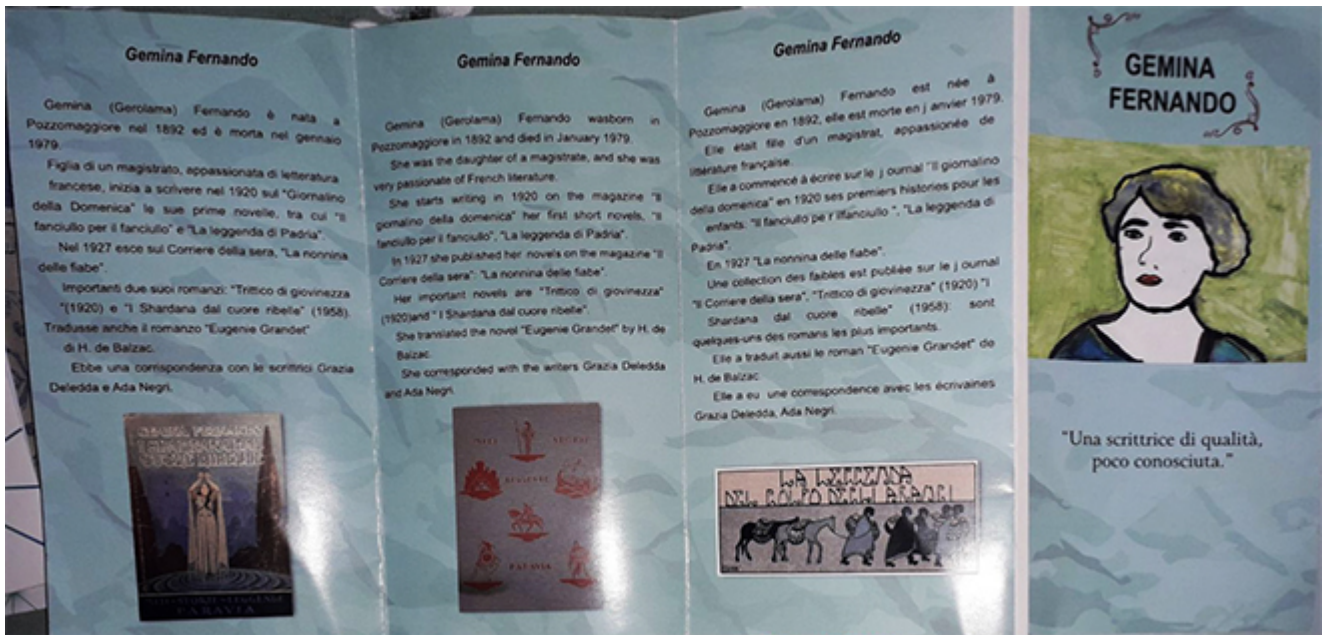 Gemina Fernando
Gemina (Gerolama) Fernando è nata a
Pozzomaggiore nel 1892 ed è morta nel gennaio
1979.
Figlia di un magistrato, appassionata di letteratura
francese, inizia a scrivere nel 1920 sul "Giornalino
della Domenica" le sue prime novelle, tra cui "Il
fanciullo per il fanciullo" e "La leggenda di Padria".
Nel 1927 esce sul Corriere della sera, "La nonnina
delle fiabe".
Importanti due suoi romanzi: "Trittico di giovinezza
"(1920) e "I Shardana dal cuore ribelle" (1958).
Tradusse anche il romanzo "Eugenie Grandet"
di H. de Balzac.
Ebbe una corrispondenza con le scrittrici Grazia
Deledda e Ada Negri.
GEMINA FERNANDO
MITI STORIE LEGGENDE
PARAVIA
Gemina Fernando
Gemina (Gerolama) Fernando wasborn in
Pozzomaggiore in 1892 and died in January 1979.
She was the daughter of a magistrate, and she was
very passionate of French literature.
She starts writing in 1920 on the magazine "Il
giornalino della domenica" her first short novels, "Il
fanciullo per il fanciullo", "La leggenda di Padria".
In 1927 she published her novels on the magazine "Il
Corriere della sera": "La nonnina delle fiabe".
Her important novels are "Trittico di giovinezza"
(1920)and " I Shardana dal cuore ribelle".
She translated the novel "Eugenie Grandet" by H. de
Balzac.
She corresponded with the writers Grazia Deledda
and Ada Negri.
MITI STORIE
LEGGENDE
PARAVIA
Gemina Fernando
Gemina (Gerolama) Fernando est née à
Pozzomaggiore en 1892, elle est morte en j anvier 1979.
Elle était fille d'un magistrat, appassionée de
littérature française.
Elle a commencé à écrire sur le j ournal "Il giornalino
della domenica" en 1920 ses premiers histories pour les
enfants: "Il fanciullo pe r ilfanciullo ", "La leggenda di
Padria".
En 1927 "La nonnina delle fiabe".
Une collection des faibles est publiée sur le j ournal
"Il Corriere della sera", "Trittico di giovinezza" (1920) "I
Shardana dal cuore ribelle" (1958): sont
quelques-uns des romans les plus importants.
Elle a traduit aussi le roman "Eugenie Grandet" de
H. de Balzac.
Elle a eu une correspondence avec les écrivaines
Grazia Deledda, Ada Negri.
LA LEGGENDA
DEL GOLFO DEGLI ARANCI
GEMINA
FERNANDO
"Una scrittrice di qualità,
poco conosciuta."